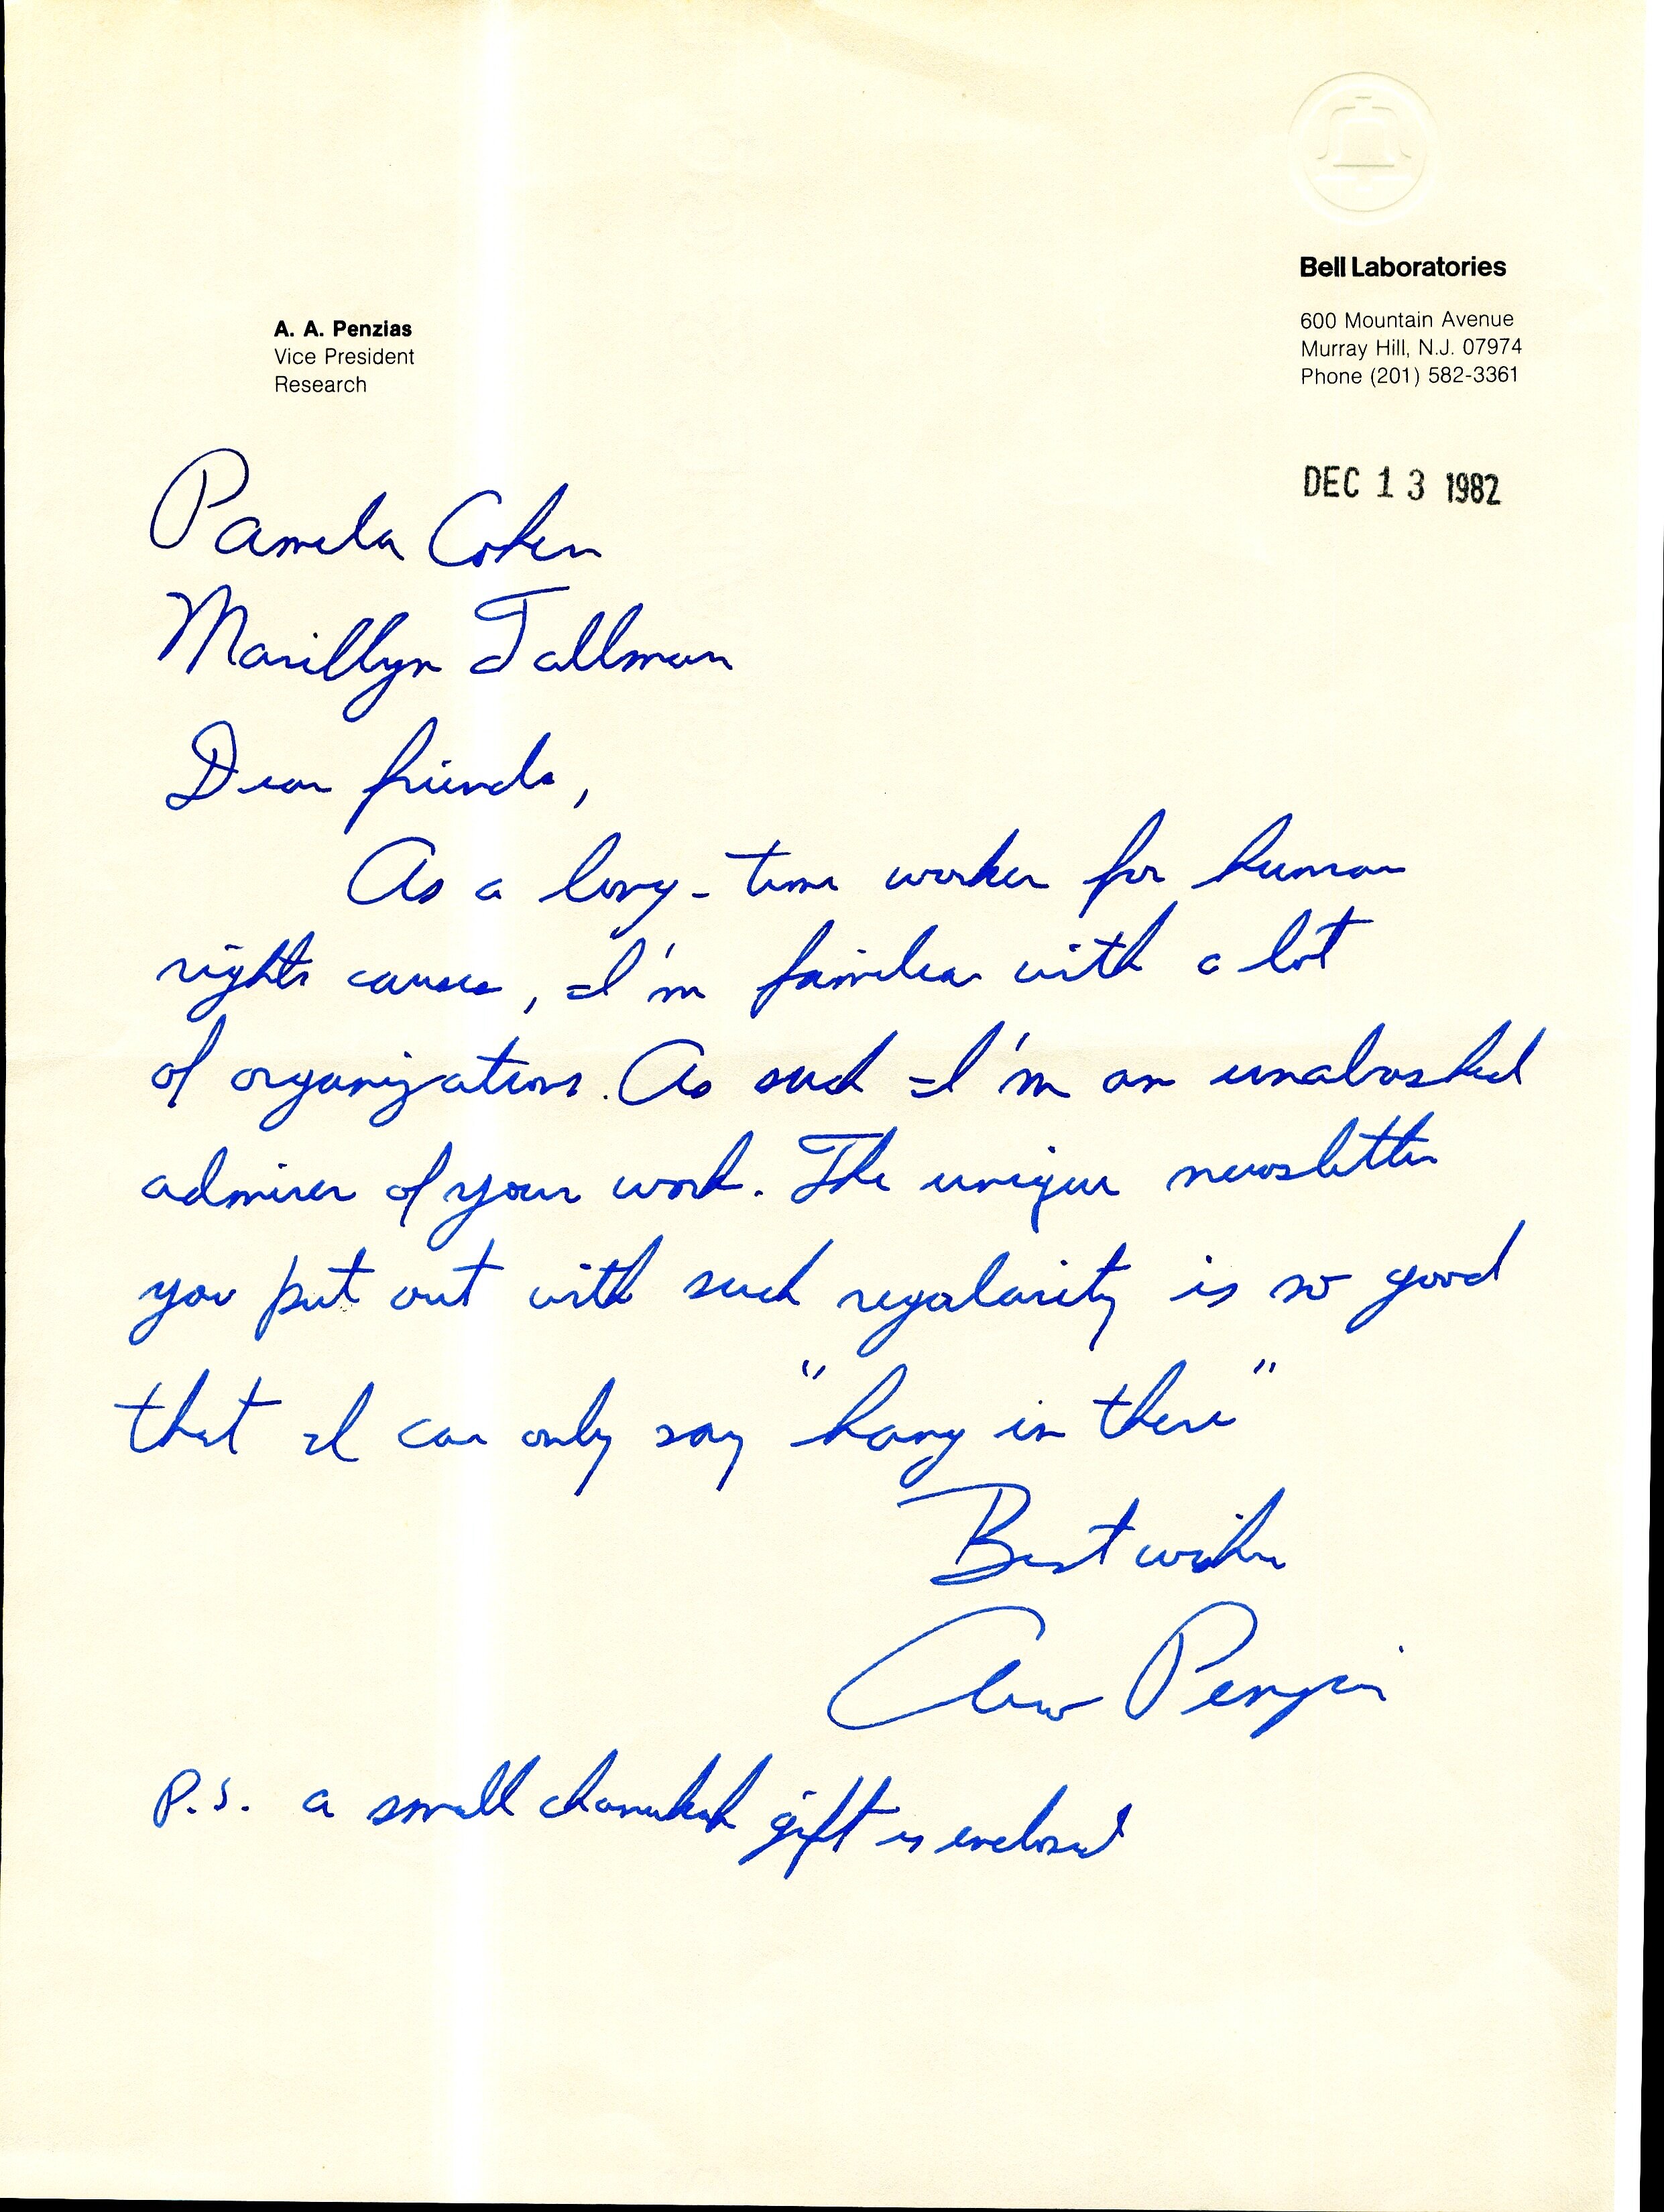 Bell Laboratories
600 Mountain Avenue
Murray Hill, N.J. 07974
Phone (201) 582-3361
A. A. Penzias
Vice President
Research
DEC 13 1982
Pamela Cohen
Marillyn Tallman
Dear friends,
As a long-time worker for human
rights causes, I'm familiar with a lot
of organizations. As such I'm an unabashed
admirer of your work. The unique newsletter
you put out with such regularity is so good
that I can only say "hang in there"
Best wishes
Arno Penzias
P.S. a small chanukah gift is enclosed